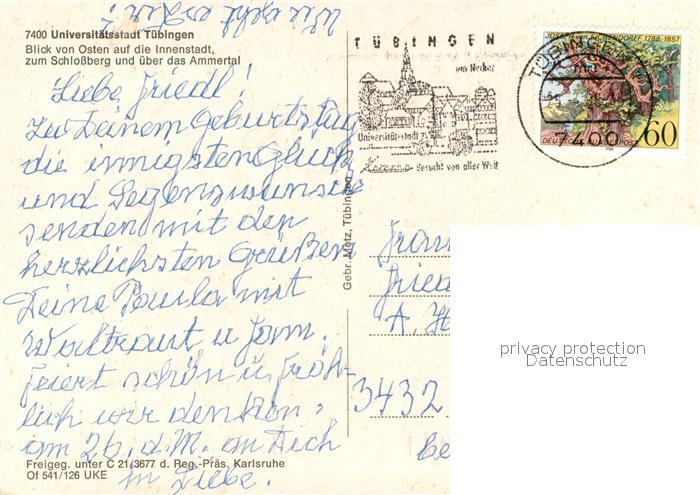 Wie geht es Dir?
7400 Universitätsstadt Tübingen
Blick von Osten auf die Innenstadt,
zum Schloßberg und über das Ammertal
Liebe Friedl!
Zu Deinem Geburtstag
die innigsten Glück
und Segenswünsche
senden mit den
herzlichsten Grüßen
Deine Paula mit
Waltraut u Fam.
Feiert schön u. fröh-
lich wir denken,
am 26. d. M. an Dich
in Liebe.
Freigeg. unter C 21/3677 d. Reg.-Präs. Karlsruhe
Of 541/126 UKE
Gebr. Metz, Tübingen
TÜBINGEN
am Neckar
Universitätsstadt
Besucht von aller Welt
JOSEPH VON EICHENDORFF 1788-1857
60
DEUTSCHE BUNDESPOST
TÜBINGEN
7400
Frau
Fried
A. H
3432
privacy protection
Datenschutz